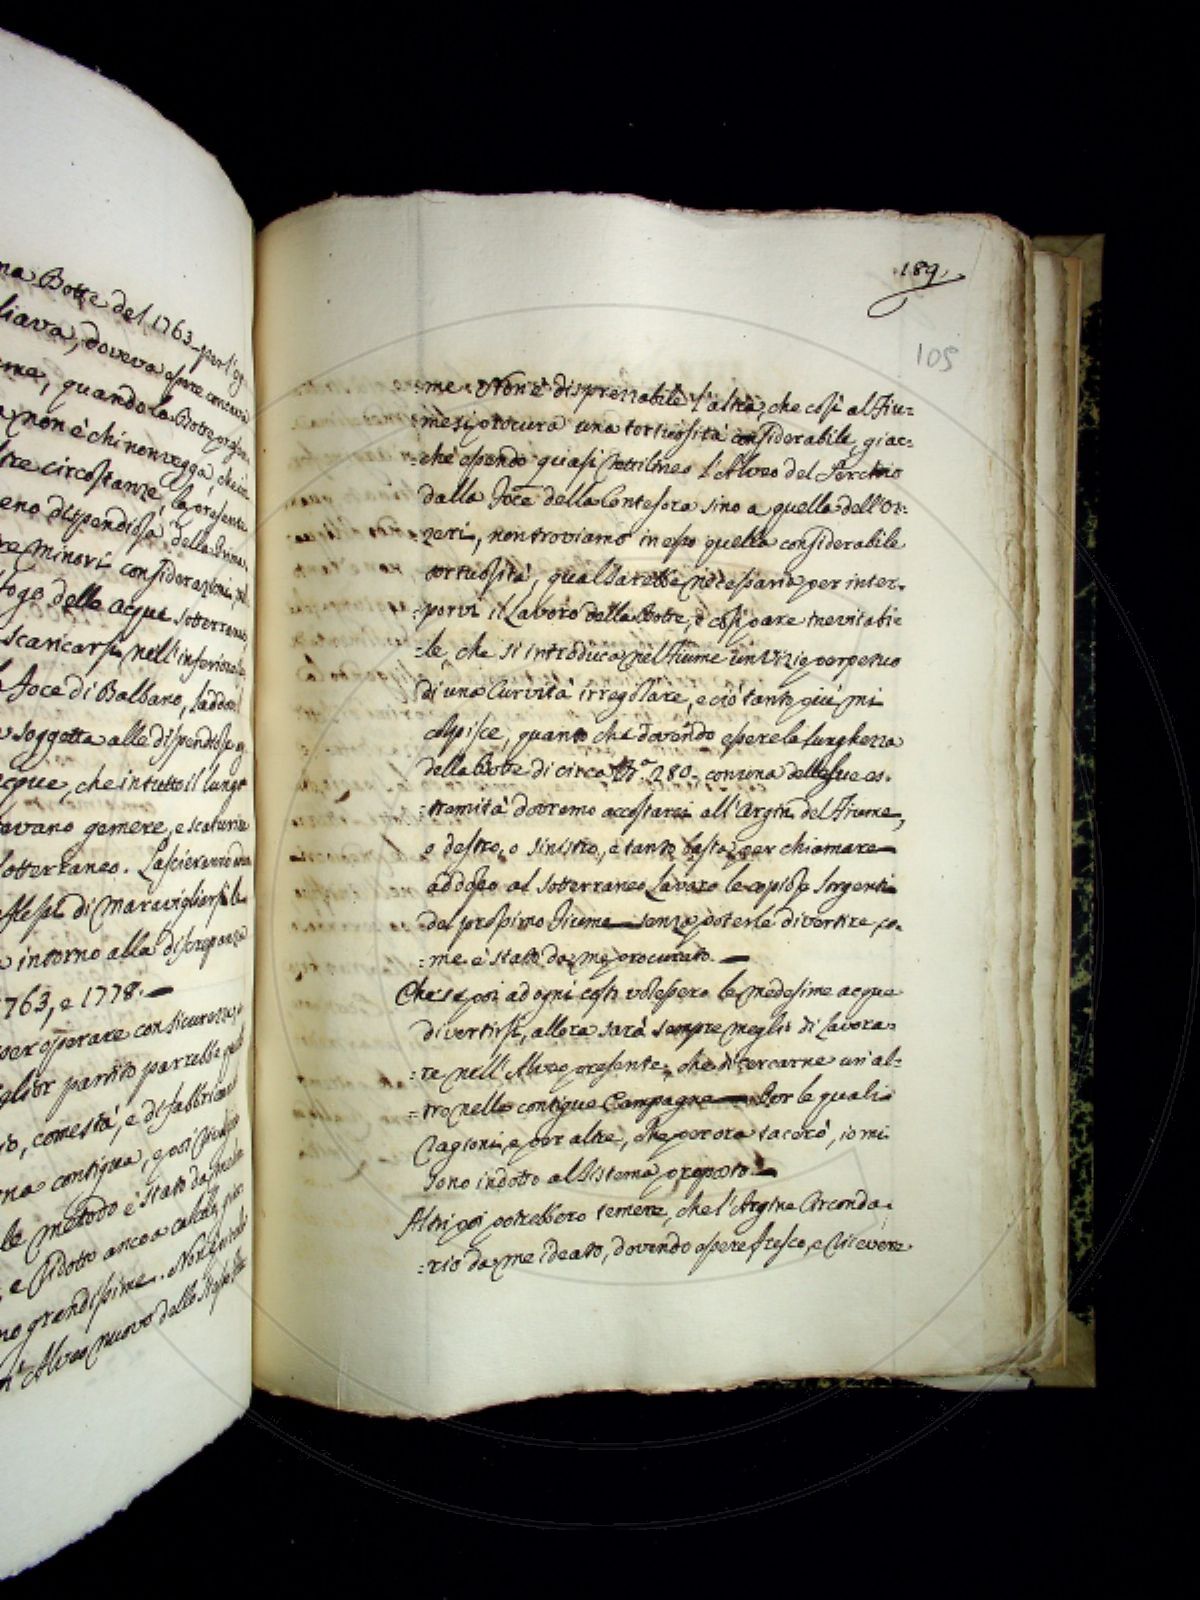 na Botte del 1763. per l'og
liava, doveva essere concava
ema, quando la Botte presen
a non è chi non vegga, che in
tre circostanze, la presente
eno dispendiosa della Prima.
re minori considerazioni, nel
fogo delle acque sotterranee
scaricarsi nell'inferiore
Foce di Balbano, laddove
soggetta alle dispendiose
cque, che in tutto il lungo
avano gemere, e scaturire
sotterraneo. Lascieranno
stessi di maravigliarsi
intorno alla discrepanza
1763, e 1778.
per operare con sicurezza
glior partito parrebbe
io, come stà, e di fabbricare
na contigua, e poi
le metodo è stato da me
e ridotto ancora a calcolo,
no grandissime. Non
Alveo nuovo dalle
189
105
:me. Non è disprezzabile l'altra, che così al Fiu:
me si procura una tortuosità considerabile, giac:
:chè essendo quasi rettilineo l'Alveo del Serchio
dalla Foce della Contesora sino a quella dell'Oz:
zeri, non troviamo in esso quella considerabile
tortuosità, qual sarebbe necessaria per inter:
:porvi il Lavoro della Botte, e così pare inevitabi:
:le che si introduca nel Fiume un Vizio perpetuo
di una Curvità irregolare, e ciò tanto più mi
colpisce, quanto che dovendo essere la lunghezza
della Botte di circa 280. con una delle sue es:
:tremità dovremo accostarci all'Argine del Fiume,
o destro, o sinistro, e tanto basta per chiamare
addosso al sotterraneo Lavoro le copiose sorgenti
del prossimo Fiume senza poterle divertire, co:
:me è stato da me procurato.
Che se poi ad ogni costo volessero le medesime acque
divertirsi, allora sarà sempre meglio di lavora:
:re nell'Alveo presente, che di cercarne un al:
:tro nelle contigue Campagne. Per le quali
ragioni, e per altre, che per ora tacerò, io mi
sono indotto al Sistema proposto.
Altri poi potrebbero temere, che l'Argine Circonda:
:rio da me ideato, dovendo essere fresco, e ricevere